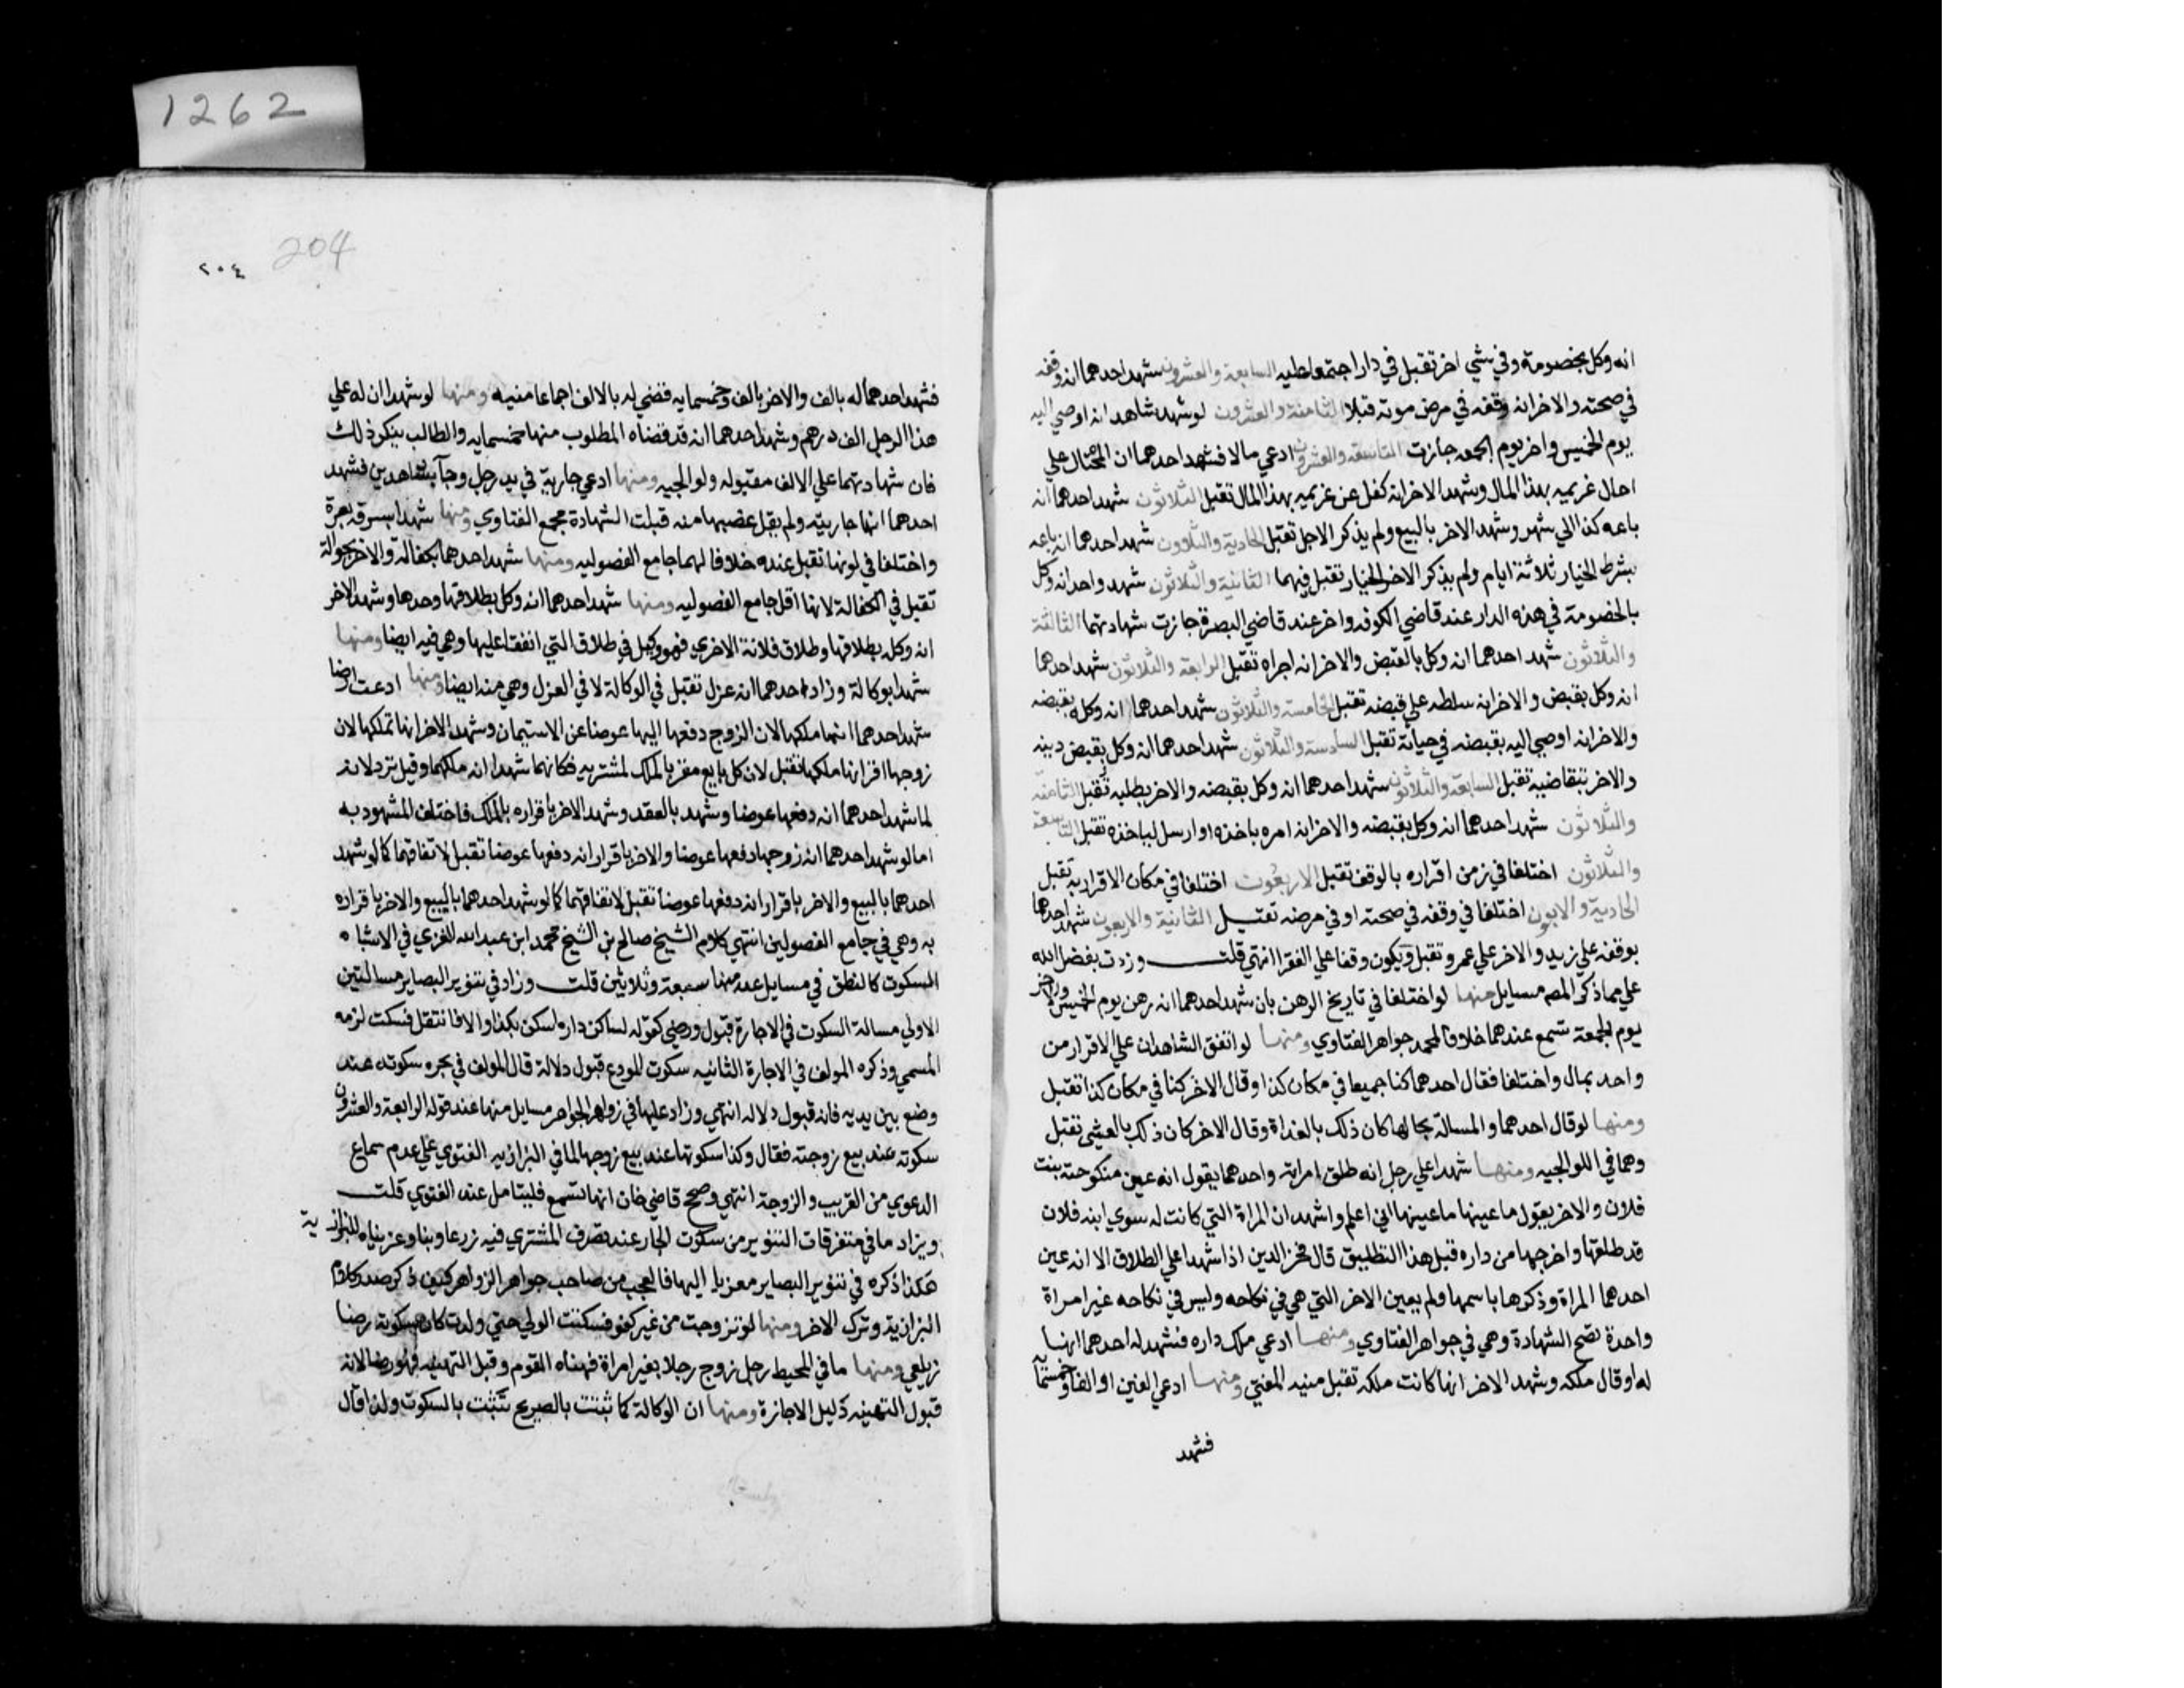 1262
انه وكل بخصومة وفي شي اخر تقبل في دار اجتمعا عليه السابعة والعشرون شهد احدهما انه وقفه
في صحته والاخر انه وقفه في مرض موته قبلا الثامنة والعشرون لو شهد شاهد انه اوصي اليه
يوم الخميس واخر يوم الجمعه جازت التاسعة والعشرون ادعي مالا فشهد احدهما ان المحتال علي
احال غريمه بهذا المال وشهد الاخر انه كفل عن غريمه بهذا المال تقبل الثلاثون شهد احدهما انه
باعه كذا الي شهر وشهد الاخر بالبيع ولم يذكر الاجل تقبل الحادية والثلاثون شهد احدهما انه باعه
بشرط الخيار ثلاثة ايام ولم يذكر الاخر الخيار تقبل فيهما الثانية والثلاثون شهد واحد انه وكل
بالخصومة في هذه الدار عند قاضي الكوفه واخر عند قاضي البصرة جازت شهادتهما الثالثة
والثلاثون شهد احدهما انه وكل بالقبض والاخر انه اجراه تقبل الرابعة والثلاثون شهد احدهما
انه وكل بقبض والاخر انه سلطه علي قبضه تقبل الخامسة والثلاثون شهد احدهما انه وكله بقبضه
والاخر انه اوصي اليه بقبضه في حياته تقبل السادسة والثلاثون شهد احدهما انه وكل بقبض دينه
والاخر بتقاضيه تقبل السابعة والثلاثون شهد احدهما انه وكل بقبضه والاخر بطلبه تقبل الثامنة
والثلاثون شهد احدهما انه وكل بقبضه والاخر انه امره باخذه او ارسل لياخذه تقبل التاسعة
والثلاثون اختلفا في زمن اقراره بالوقف تقبل الاربعون اختلفا في مكان الاقرار به تقبل
الحادية والاربون اختلفا في وقفه في صحته او في مرضه تقبل الثانية والاربعون شهد احدهما
بوقفه علي زيد والاخر علي عمرو تقبل ويكون وقفا علي الفقرا انتهي قلت وزدت بفضل الله
علي مما ذكر المص مسايل منها لو اختلفا في تاريخ الرهن بان شهد احدهما انه رهن يوم الخميس والاخر
يوم الجمعة تسمع عندهما خلافا لمحمد جواهر الفتاوي ومنها لو اتفق الشاهدان علي الاقرار من
واحد بمال واختلفا فقال احدهما كنا جميعا في مكان كذا وقال الاخر كنا في مكان كذا تقبل
ومنها لو قال احدهما والمسالة بحالها كان ذلك بالغداة وقال الاخر كان ذلك بالعشي تقبل
وهما في اللوالجيه ومنها شهدا علي رجل انه طلق امراته واحدهما يقول انه عين منكوحته بنت
فلان والاخر يقول ما عينها ما عينها اني اعلم واشهد ان المراة التي كانت له سوي ابنه فلان
قد طلقها واخرجها من داره قبل هذا التطليق قال فخر الدين اذا شهدا علي الطلاق الا انه عين
احدهما المراة وذكرها باسمها ولم يعين الاخر التي هي في نكاحه وليس في نكاحه غير امراة
واحدة تصح الشهادة وهي في جواهر الفتاوي ومنها ادعي ملك داره فشهد له احدهما انها
له او قال ملكه وشهد الاخر انها كانت ملكه تقبل منيه المفتي ومنها ادعي الفين او الفا وخمسمأة
فشهد
204
٢٠٤
فشهد احدهما له بالف والاخر بالف وخمسمايه قضي له بالالف اجماعا منيه ومنها لو شهدا ان له علي
هذا الرجل الف درهم وشهد احدهما انه قد قضاه المطلوب منها خمسمايه والطالب ينكر ذلك
فان شهادتهما علي الالف مقبوله ولوالجيه ومنها ادعي جارية في يد رجل وجآ بشاهدين فشهد
احدهما انها جاريته ولم يقل غصبها منه قبلت الشهادة مجمع الفتاوي ومنها شهدا بسرقة بقرة
واختلفا في لونها تقبل عنده خلافا لهما جامع الفصوليه ومنها شهد احدهما بكفالة والاخر بحوالة
تقبل في الكفالة لانها اقل جامع الفصوليه ومنها شهد احدهما انه وكل بطلاقها وحدها وشهد الاخر
انه وكل بطلاقها وطلاق فلانة الاخري فهو وكيل في طلاق التي اتفقا عليها وهي فيه ايضا ومنها
شهدا بوكالة وزاد احدهما انه عزل تقبل في الوكالة لا في العزل وهي منه ايضا ومنها ادعت ارضا
شهد احدهما انها ملكها لان الزوج دفعها اليها عوضا عن الاستيمان وشهد الاخر انها تملكها لان
زوجها اقر انها ملكها تقبل لان كل بايع مقر بالملك لمشتريه فكانهما شهدا انه ملكها وقيل ترد لانه
لما شهد احدهما انه دفعها عوضا وشهد بالعقد وشهد الاخر باقراره بالملك فاختلف المشهود به
اما لو شهد احدهما ان زوجها دفعها عوضا والاخر باقرار انه دفعها عوضا تقبل لاتفاقهما كما لو شهد
احدهما بالبيع والاخر باقرار انه دفعها عوضا تقبل لاتفاقهما كما لو شهد احدهما بالبيع والاخر باقراره
به وهي في جامع الفصولين انتهي كلام الشيخ صالح بن الشيخ محمد ابن عبد الله الغزي في الاشباه
السكوت كالنطق في مسايل عد منها سبعة وثلاثين قلت وزاد في تنوير البصاير مسالتين
الاولي مسالة السكوت في الاجارة قبول ورضي كقوله لساكن داره اسكن بكذا والا فانتقل فسكت لزمه
المسمي وذكره المولف في الاجارة الثانيه سكوت المودع قبول دلالة قال المولف في بحره سكوته عند
وضع بين يديه فانه قبول دلاله انتهي وزاد عليها في زواهر الجواهر مسايل منها عند قوله الرابعة والعشرون
سكوته عند بيع زوجته فقال وكذا سكوتها عند بيع زوجها لما في البزازيه الفتوي علي عدم سماع
الدعوي من القريب والزوجة انتهي وصحح قاضي خان انها تسمع فليتامل عند الفتوي قلت
ويزاد ما في متفرقات التنوير من سكوت الجار عند تصرف المشتري فيه زرعا وبنا وعزيناه للبزازية
هكذا ذكره في تنوير البصاير معزيا اليها فالعجب من صاحب جواهر الزواهر كيف ذكر صدر كلام
البزازية وترك الاخر ومنها لو تزوجت من غير كفو فسكت الولي حتي ولدت كان سكوته رضا
زيلعي ومنها ما في المحيط رجل زوج رجلا بغير امراة فهناه القوم وقبل التهنيه فهو رضا لانه
قبول التهنيه دليل الاجازة ومنها ان الوكالة كما تثبت بالصريح تثبت بالسكوت ولذا قال